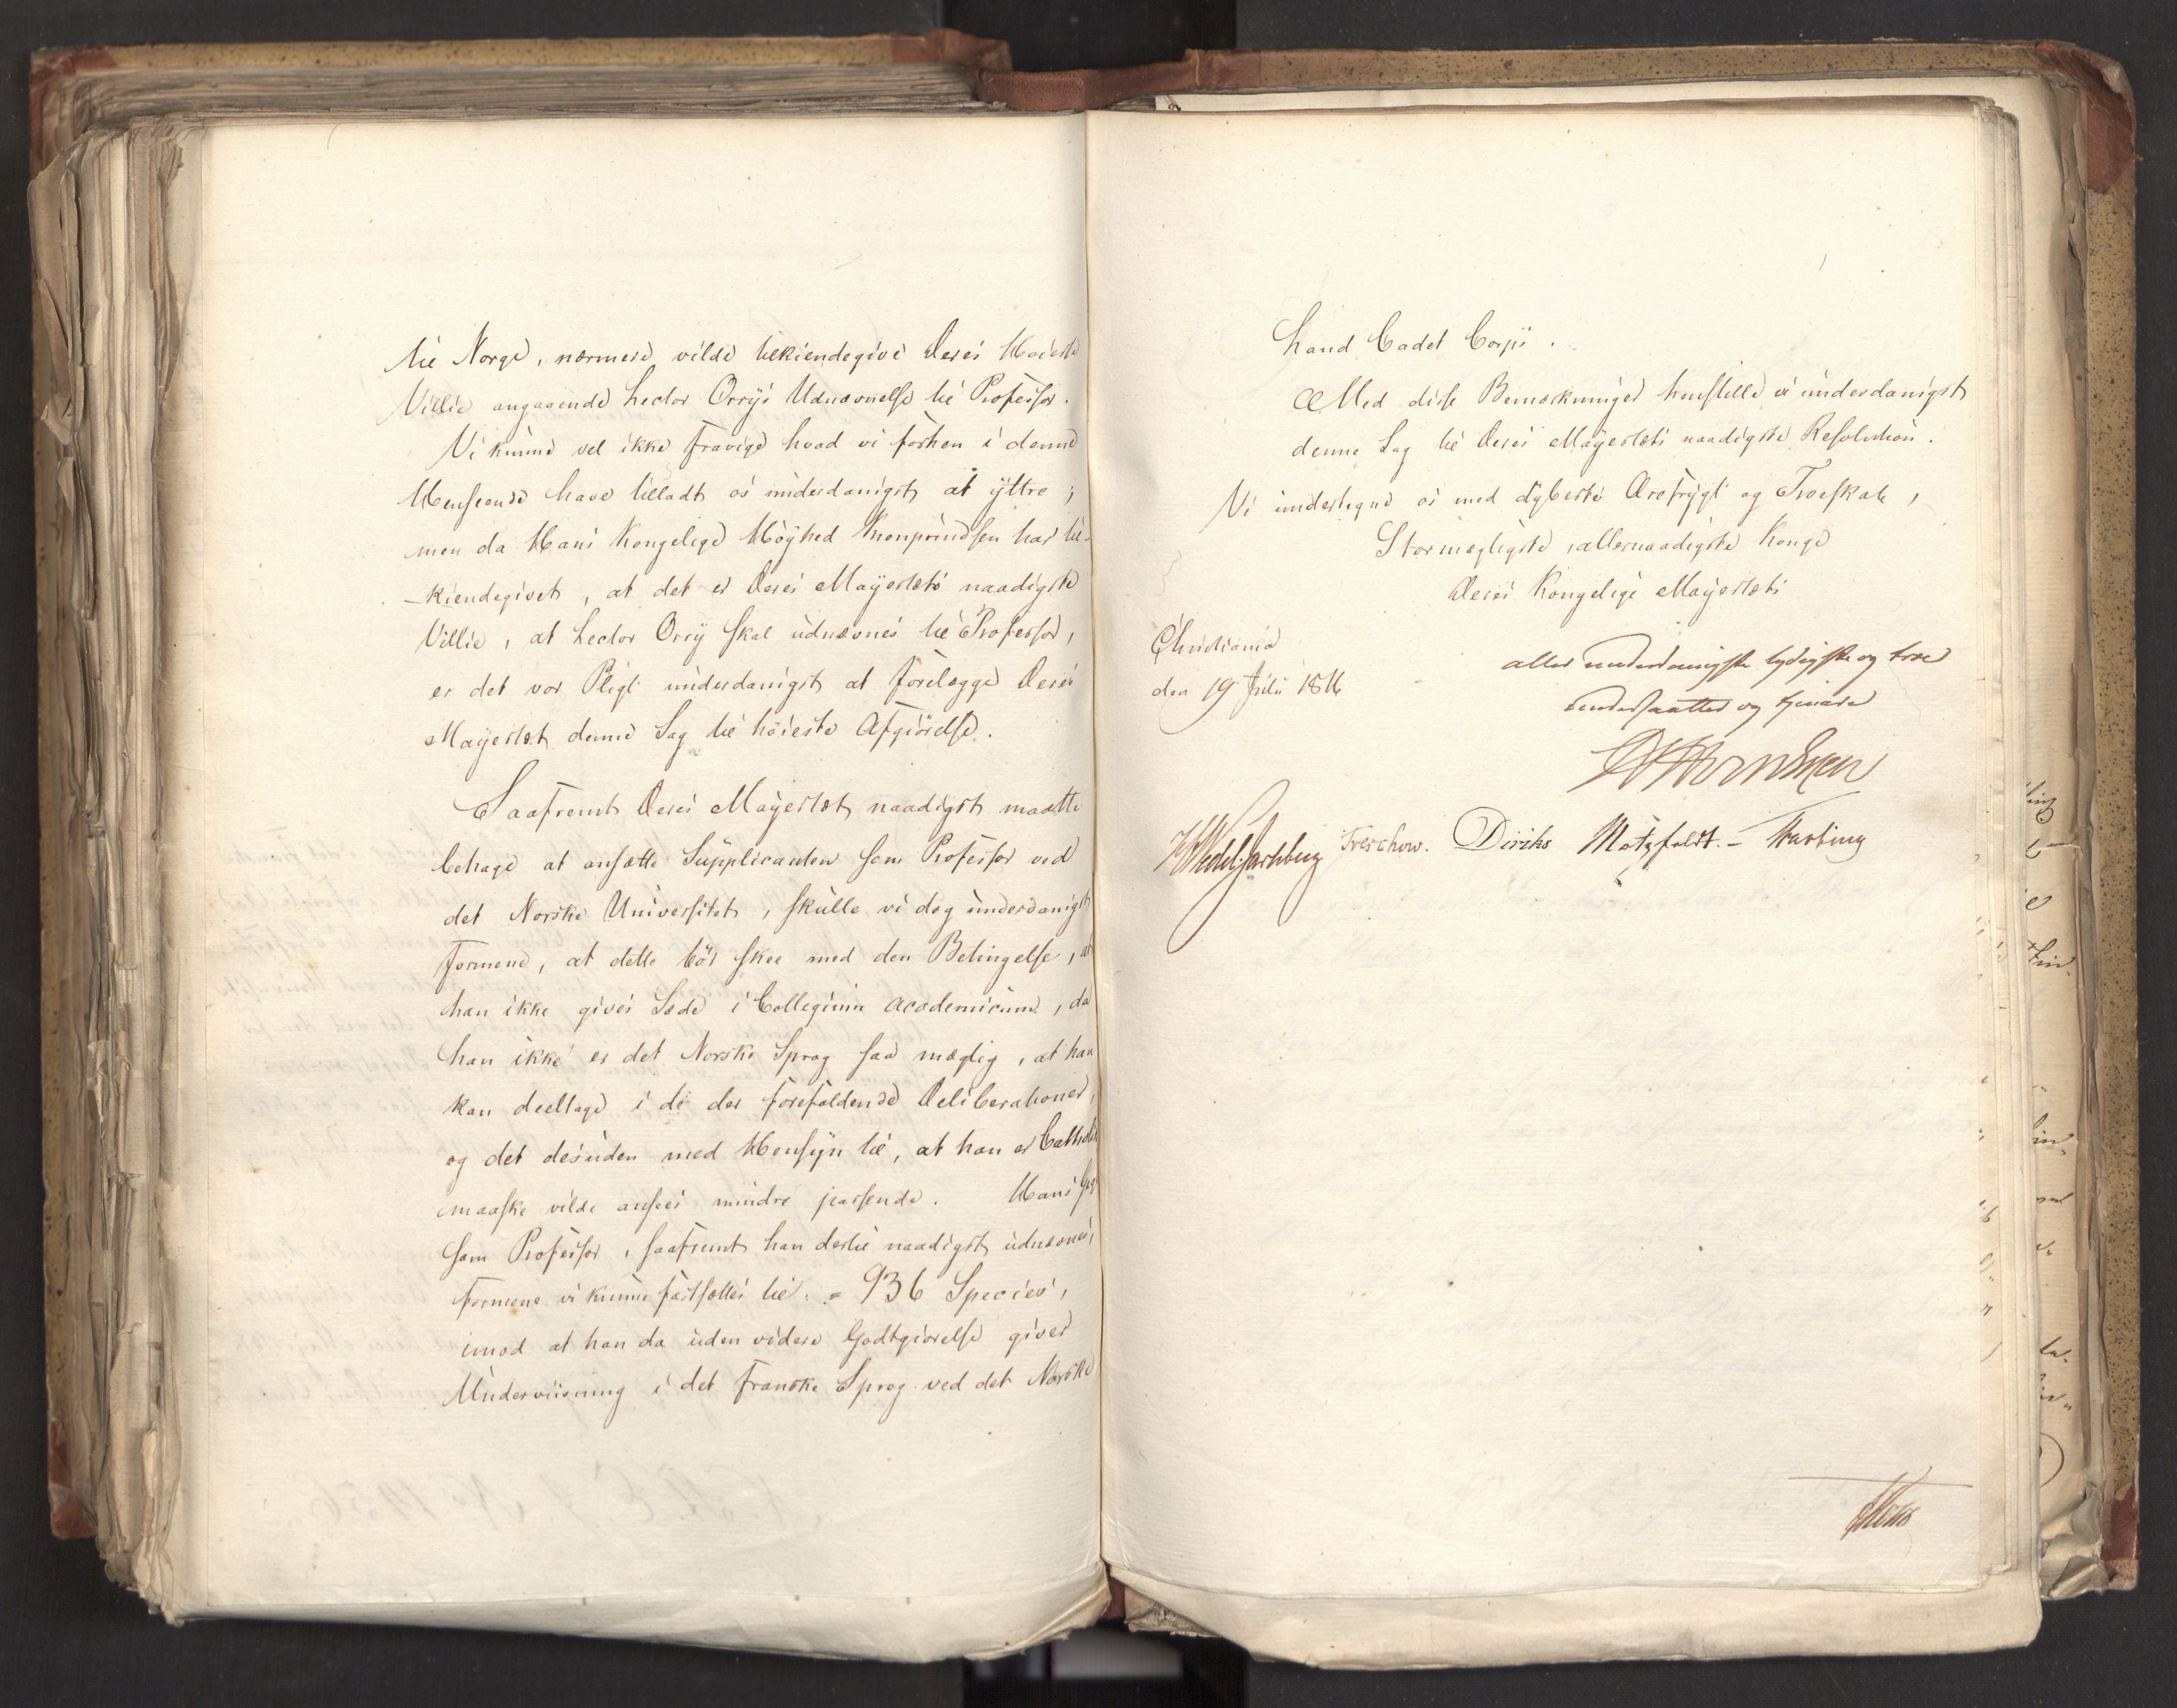 til Norge, nærmere vilde tilkiendegive Deres Høieste
Villie angaaende Lector Orrys Udnævnelse til Professor.
Vi kunne vel ikke fravige hvad vi forhen i denne
Henseende have tilladt os underdanigst at yttre;
men da Hans Kongelige Høyhed Kronprindsen har til-
-kiendegivet, at det er Deres Mayestæts naadigste
Villie, at Lector Orry skal udnævnes til Professor,
er det vor Pligt underdanigst at forelægge Deres
Mayestæt denne Sag til høieste Afgiørelse.
Saafremt Deres Mayestæt naadigst maatte
behage at ansætte Supplicanten som Professor ved
det Norske Universitet, skulle vi dog underdanigst
formene, at dette bør skee med den Betingelse, at
han ikke gives Sæde i Collegium academicum, da
han ikke er det Norske Sprog saa mægtig, at han
kan deeltage i de der forefaldende Deliberationer,
og det desuden med Hensyn til, at han er Catholik
maaske vilde ansees mindre passende. Hans Gage
som Professor, saafremt han dertil naadigst udnævnes,
formene vi kunne fastsættes til = 936 Species,
imod at han da uden videre Godtgiørelse giver
Underviisning i det franske Sprog ved det Norske
Land Cadet Corps.
Med disse Bemærkninger henstille vi underdanigst
denne Sag til Deres Mayestæts naadigste Resolution.
Vi undertegne os med dybeste Ærefrygt og Troeskab,
Stormægtigste, allernaadigste Konge
Deres Kongelige Mayestæts
Christiania
den 19 Julii 1816
aller underdanigste lydigste og troe
undersaatter og tjenere
Wedel Jarlsberg Treschow. Diriks Motzfeldt. -